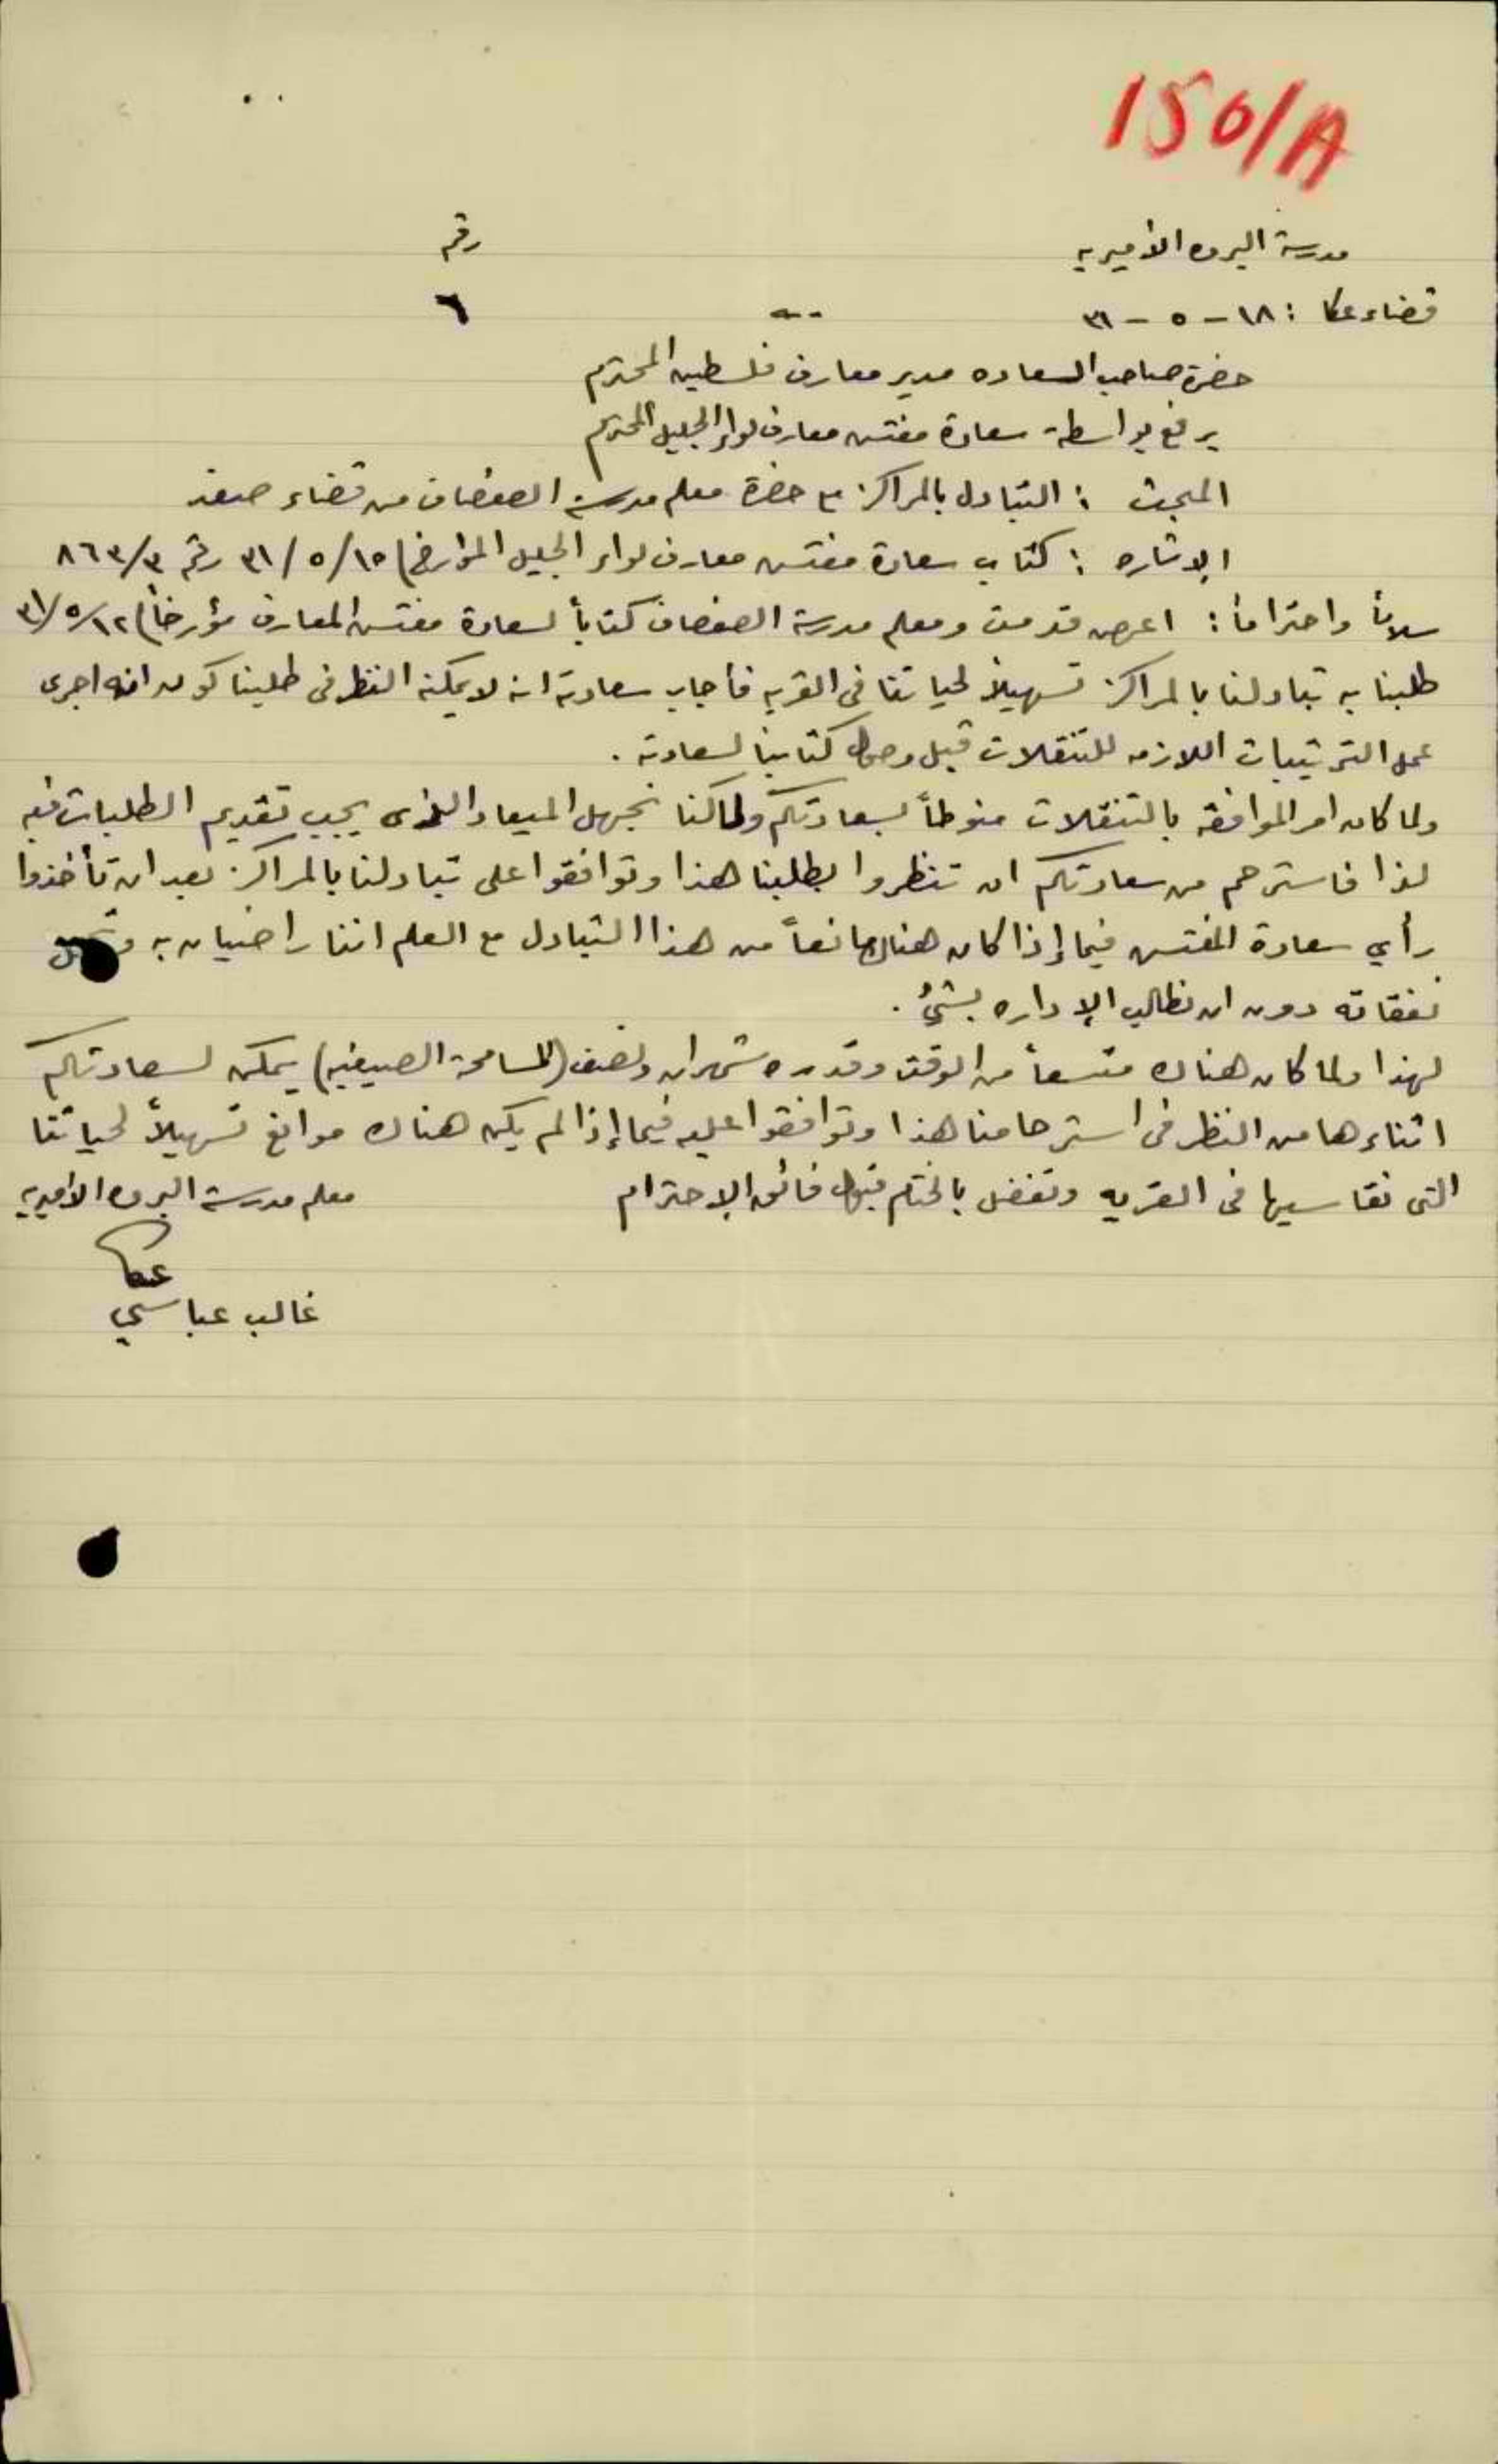 150/A
مدرسة البروه الأميريه
رقم
قضاء عكا : ١٨ - ٥ - ٣١
٦
حضرة صاحب السعاده مدير معارف فلسطين المحترم
يرفع بواسطة سعادة مفتش معارف لواء الجليل المحترم
المبحث : التبادل بالمراكز مع حضرة معلم مدرسة الصفصاف من قضاء صفد
الإشاره : كتاب سعادة مفتش معارف لواء الجليل المؤرخ ١٥/٥/٣١ رقم ٨٦٣/٣
سلاماً واحتراماً : اعرض قدمت ومعلم مدرسة الصفصاف كتاباً لسعادة مفتش المعارف مؤرخاً ١٢/٥/٣١
طلبنا به تبادلنا بالمراكز تسهيلاً لحياتنا في القريه فأجاب سعادته انه لا يمكنه النظر في طلبنا كون انه اجرى
عمل الترتيبات اللازمه للتنقلات قبل وصول كتابنا لسعادته .
ولما كان امر الموافقه بالتنقلات منوطاً بسعادتكم ولما كنا نجهل الميعاد الذي يجب تقديم الطلبات فيه
لذا فاسترحم من سعادتكم ان تنظروا بطلبنا هذا وتوافقوا على تبادلنا بالمراكز بعد ان تأخذوا
رأي سعادة المفتش فيما إذا كان هناك مانعاً من هذا التبادل مع العلم اننا راضيان به
نفقاته دون ان نطالب الإداره بشيءٍ .
لهذا ولما كان هناك متسعاً من الوقت وقدره شهران ونصف (المسامحة الصيفيه) يمكن لسعادتكم
اثناءها من النظر في استرحامنا هذا وتوافقوا عليه فيما إذا لم يكن هناك موانع تسهيلاً لحياتنا
التي نقاسيها في القريه وتفضل بالختام قبول فائق الإحترام
معلم مدرسة البروه الأميريه
عكا
غالب عباسي